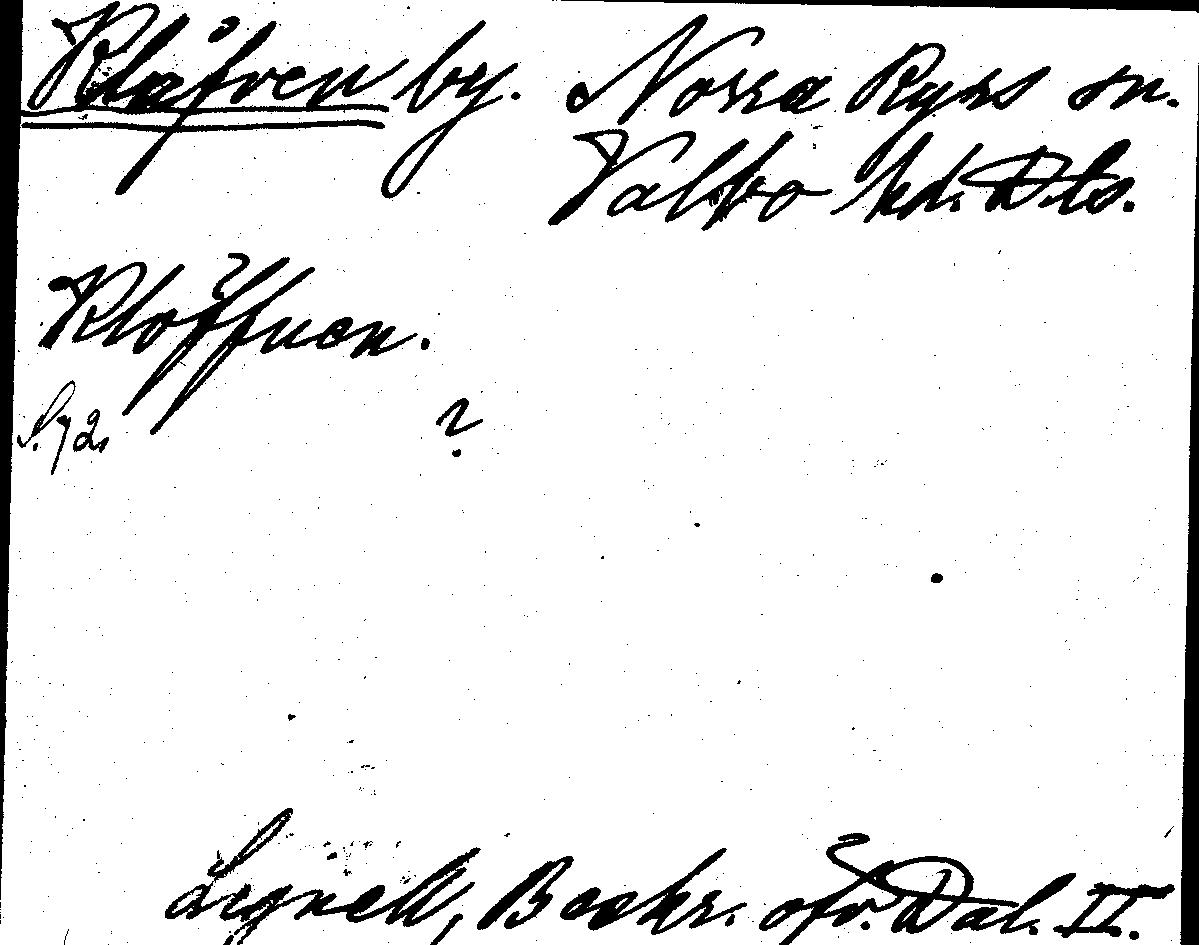 Klåfven by. Norra Ryrs sn.
Valbo hd. Dls.
Klöffuen.
S. 72. ?
Lignell, Beskr. öfv. Dal. II.